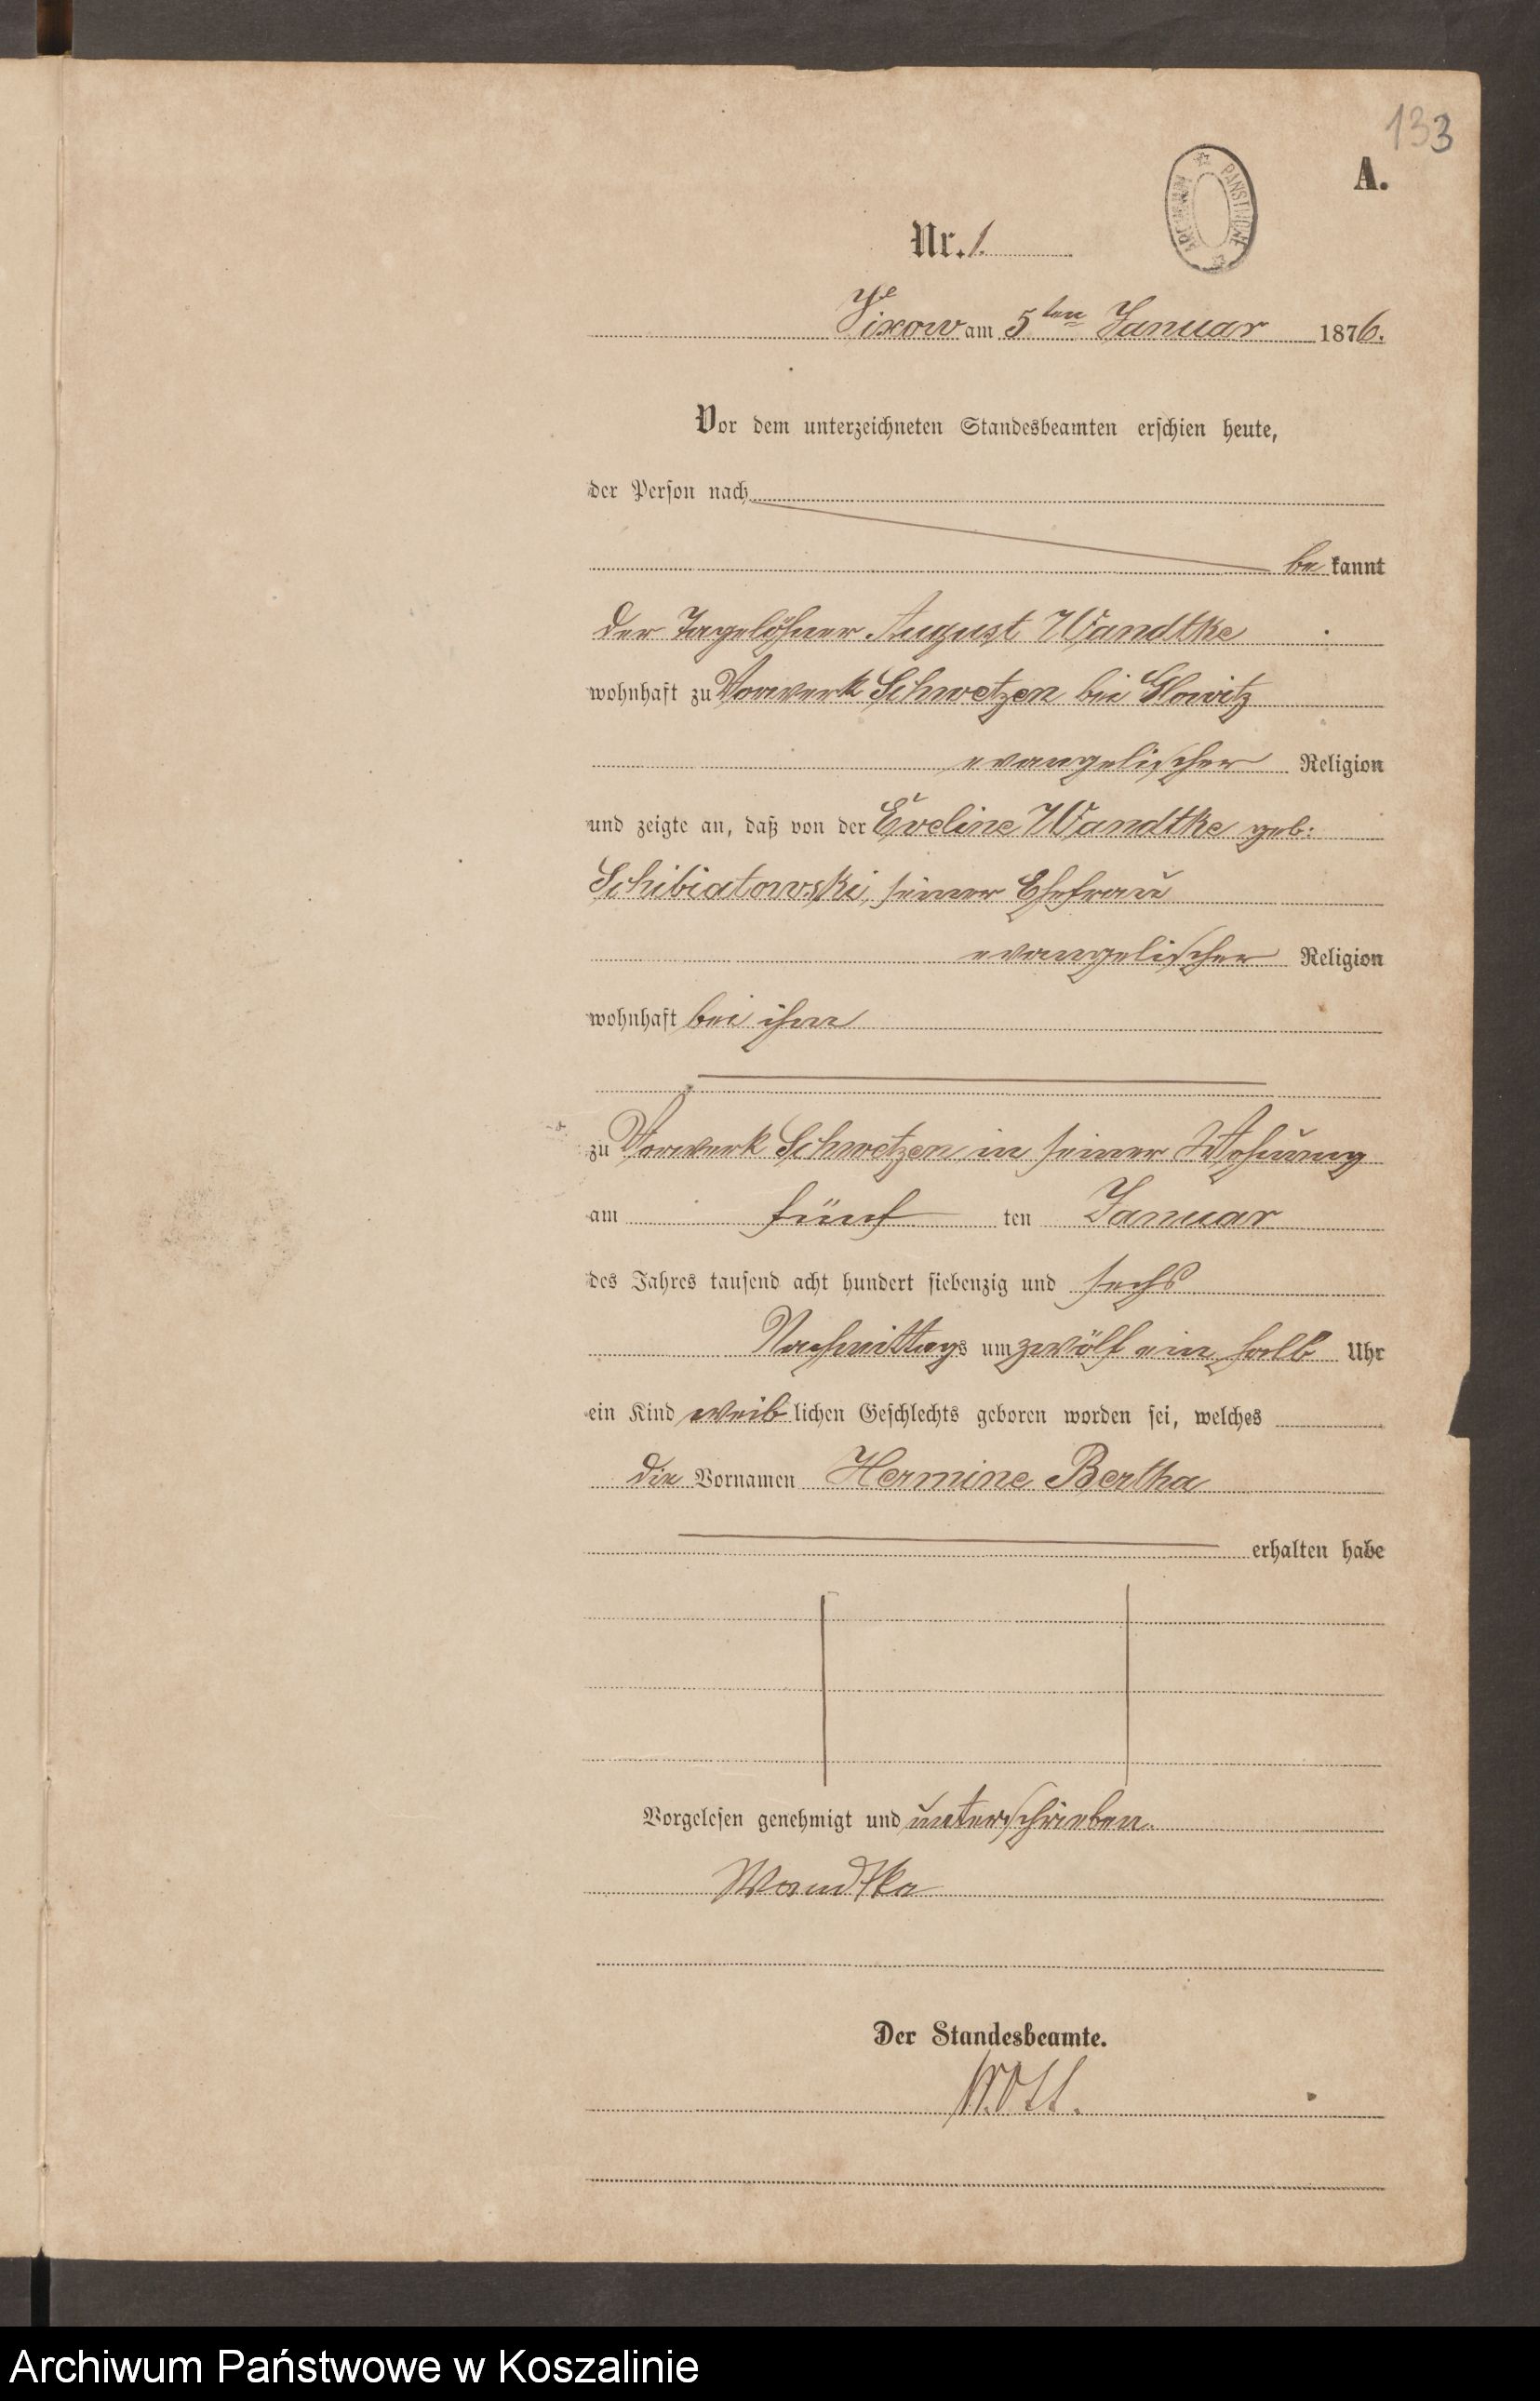 133
A.
ARCHIWUM PAŃSTWOWE
Nr. 1.
Vixow am 5ten Januar 1876.
Vor dem unterzeichneten Standesbeamten erschien heute,
der Person nach
be kannt
der Tagelöhner August Wandtke
wohnhaft zu Vorwerk Schwetzen bei Glowitz
evangelischer Religion
und zeigte an, daß von der Eveline Wandtke geb:
Schibiatowski, seiner Ehefrau
evangelischer Religion
wohnhaft bei ihm
zu Vorwerk Schwetzen in seiner Wohnung
am fünf ten Januar
des Jahres tausend acht hundert siebenzig und sechs
Nachmittags um zwölf ein halb Uhr
ein Kind weib lichen Geschlechts geboren worden sei, welches
die Vornamen Hermine Bertha
erhalten habe
Vorgelesen genehmigt und unterschrieben.
Wandtke
Der Standesbeamte.
Archiwum Państwowe w Koszalinie